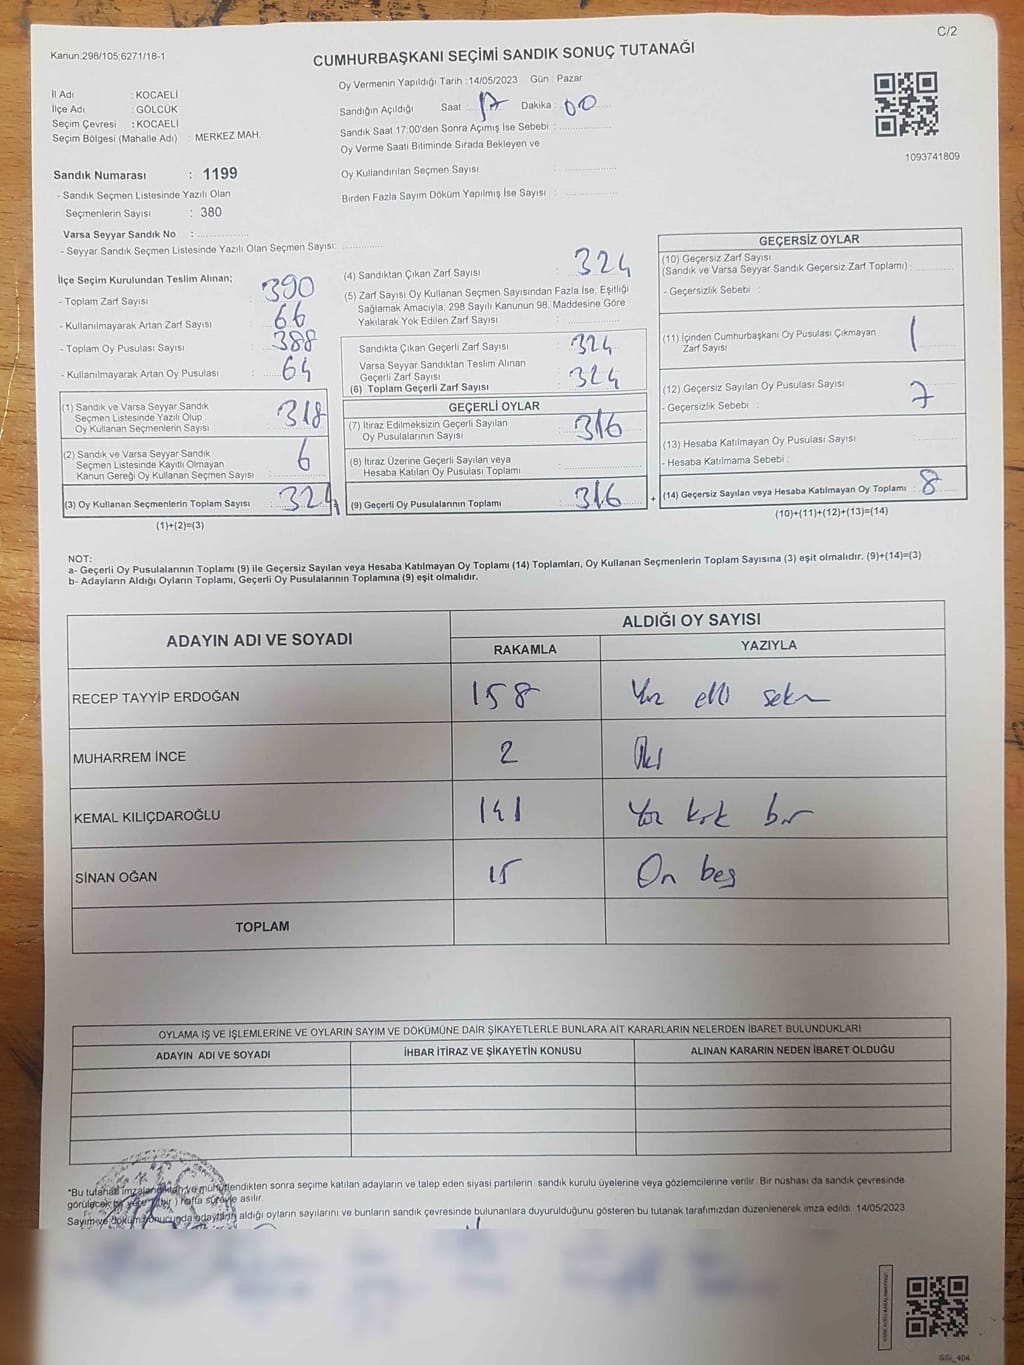 C/2
Kanun:298/105;6271/18-1
CUMHURBAŞKANI SEÇİMİ SANDIK SONUÇ TUTANAĞI
İl Adı : KOCAELİ
İlçe Adı : GÖLCÜK
Seçim Çevresi : KOCAELİ
Seçim Bölgesi (Mahalle Adı) : MERKEZ MAH.
Oy Vermenin Yapıldığı Tarih :14/05/2023 Gün : Pazar
Sandığın Açıldığı Saat : 17 Dakika : 00
Sandık Saat 17:00'den Sonra Açımış İse Sebebi :
Oy Verme Saati Bitiminde Sırada Bekleyen ve
Oy Kullandırılan Seçmen Sayısı :
Birden Fazla Sayım Döküm Yapılmış İse Sayısı :
1093741809
Sandık Numarası : 1199
- Sandık Seçmen Listesinde Yazılı Olan
Seçmenlerin Sayısı : 380
Varsa Seyyar Sandık No :
- Seyyar Sandık Seçmen Listesinde Yazılı Olan Seçmen Sayısı:
İlçe Seçim Kurulundan Teslim Alınan;
- Toplam Zarf Sayısı : 390
- Kullanılmayarak Artan Zarf Sayısı : 66
- Toplam Oy Pusulası Sayısı : 388
- Kullanılmayarak Artan Oy Pusulası : 64
(1) Sandık ve Varsa Seyyar Sandık
Seçmen Listesinde Yazılı Olup
Oy Kullanan Seçmenlerin Sayısı : 318
(2) Sandık ve Varsa Seyyar Sandık
Seçmen Listesinde Kayıtlı Olmayan
Kanun Gereği Oy Kullanan Seçmen Sayısı : 6
(3) Oy Kullanan Seçmenlerin Toplam Sayısı : 324
(1)+(2)=(3)
(4) Sandıktan Çıkan Zarf Sayısı : 324
(5) Zarf Sayısı Oy Kullanan Seçmen Sayısından Fazla İse, Eşitliği
Sağlamak Amacıyla; 298 Sayılı Kanunun 98. Maddesine Göre
Yakılarak Yok Edilen Zarf Sayısı :
Sandıkta Çıkan Geçerli Zarf Sayısı : 324
Varsa Seyyar Sandıktan Teslim Alınan
Geçerli Zarf Sayısı :
(6) Toplam Geçerli Zarf Sayısı 324
GEÇERLİ OYLAR
(7) İtiraz Edilmeksizin Geçerli Sayılan
Oy Pusulalarının Sayısı : 316
(8) İtiraz Üzerine Geçerli Sayılan veya
Hesaba Katılan Oy Pusulası Toplamı :
(9) Geçerli Oy Pusulalarının Toplamı : 316
+
GEÇERSİZ OYLAR
(10) Geçersiz Zarf Sayısı
(Sandık ve Varsa Seyyar Sandık Geçersiz Zarf Toplamı) :
- Geçersizlik Sebebi :
(11) İçinden Cumhurbaşkanı Oy Pusulası Çıkmayan
Zarf Sayısı : 1
(12) Geçersiz Sayılan Oy Pusulası Sayısı : 7
- Geçersizlik Sebebi :
(13) Hesaba Katılmayan Oy Pusulası Sayısı :
- Hesaba Katılmama Sebebi :
(14) Geçersiz Sayılan veya Hesaba Katılmayan Oy Toplamı : 8
(10)+(11)+(12)+(13)=(14)
NOT:
a- Geçerli Oy Pusulalarının Toplamı (9) ile Geçersiz Sayılan veya Hesaba Katılmayan Oy Toplamı (14) Toplamları, Oy Kullanan Seçmenlerin Toplam Sayısına (3) eşit olmalıdır. (9)+(14)=(3)
b- Adayların Aldığı Oyların Toplamı, Geçerli Oy Pusulalarının Toplamına (9) eşit olmalıdır.
ADAYIN ADI VE SOYADI
ALDIĞI OY SAYISI
RAKAMLA YAZIYLA
RECEP TAYYİP ERDOĞAN 158 Yüz elli sekiz
MUHARREM İNCE 2 İki
KEMAL KILIÇDAROĞLU 141 Yüz kırk bir
SİNAN OĞAN 15 On beş
TOPLAM
OYLAMA İŞ VE İŞLEMLERİNE VE OYLARIN SAYIM VE DÖKÜMÜNE DAİR ŞİKAYETLERLE BUNLARA AİT KARARLARIN NELERDEN İBARET BULUNDUKLARI
ADAYIN ADI VE SOYADI İHBAR İTİRAZ VE ŞİKAYETİN KONUSU ALINAN KARARIN NEDEN İBARET OLDUĞU
*Bu tutanak imzalandıktan ve mühürlendikten sonra seçime katılan adayların ve talep eden siyasi partilerin sandık kurulu üyelerine veya gözlemcilerine verilir. Bir nüshası da sandık çevresinde
görülecek bir yere ( bir ) hafta süreyle asılır.
Sayım ve döküm sonucunda adayların aldığı oyların sayılarını ve bunların sandık çevresinde bulunanlara duyurulduğunu gösteren bu tutanak tarafımızdan düzenlenerek imza edildi. 14/05/2023